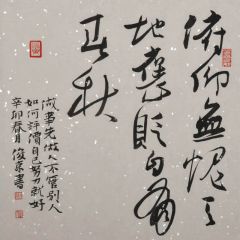 俯仰無愧天
地褒貶自有
春秋
做事先做人不管別人
如何評價自己努力就好
辛卯春月 俊書